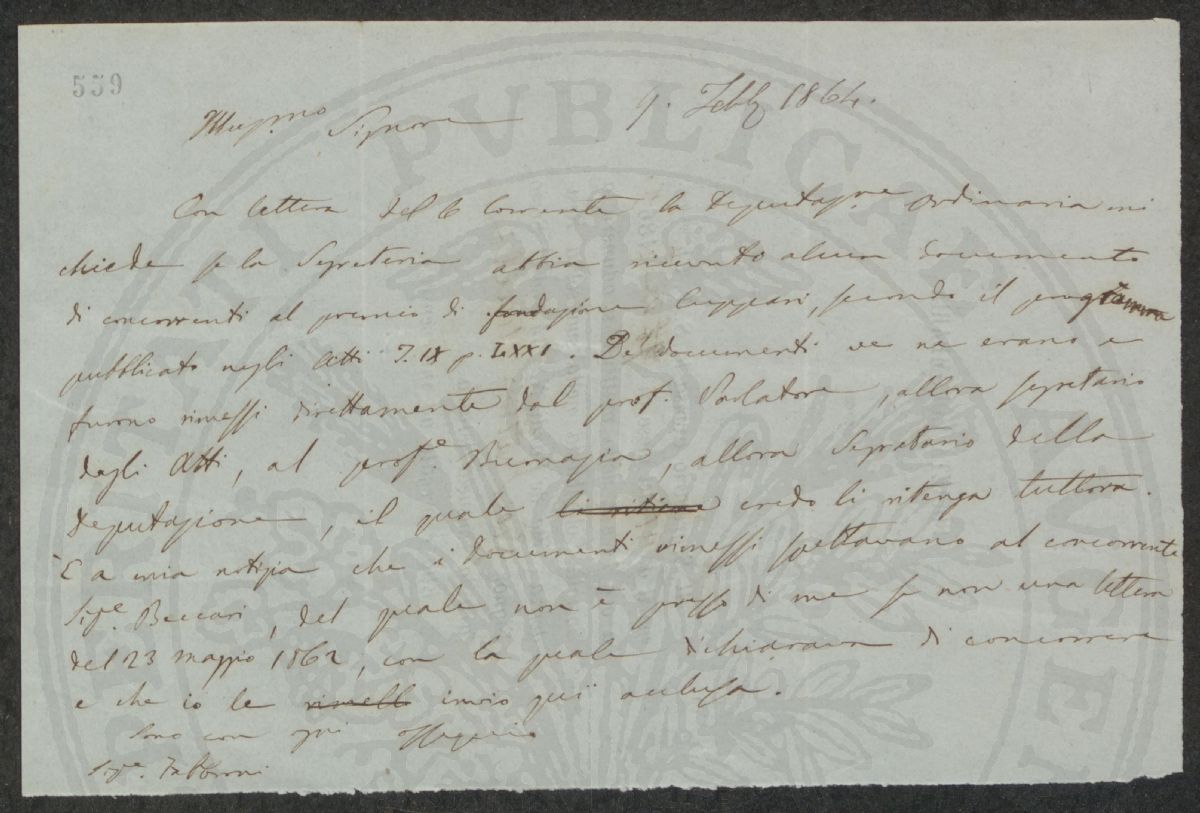 559
Illus.mo Signore 9. Febb. 1864.
Con lettera del 6 corrente la Deputaz.ne ordinaria mi
chiede se la Segreteria abbia ricevuto alcun documento
di concorrenti al premio di fondazione Cuppari, secondo il programma
pubblicato negli Atti T. IX p. LXXI. De documenti ve ne erano e
furono rimessi direttamente dal prof. Parlatore, allora segretario
degli Atti, al prof.e Bumagia, allora Segretario della
Deputazione, il quale li ritiene credo li ritenga tuttora.
È a mia notizia che i documenti rimessi spettavano al concorrente
Sig.e Beccari, del quale non è presso di me se non una lettera
del 23 maggio 1862, con la quale dichiarava di concorrere
e che io le invio qui acclusa.
Sono con ossequio
Sig.e Fabbroni
PVBLICAE